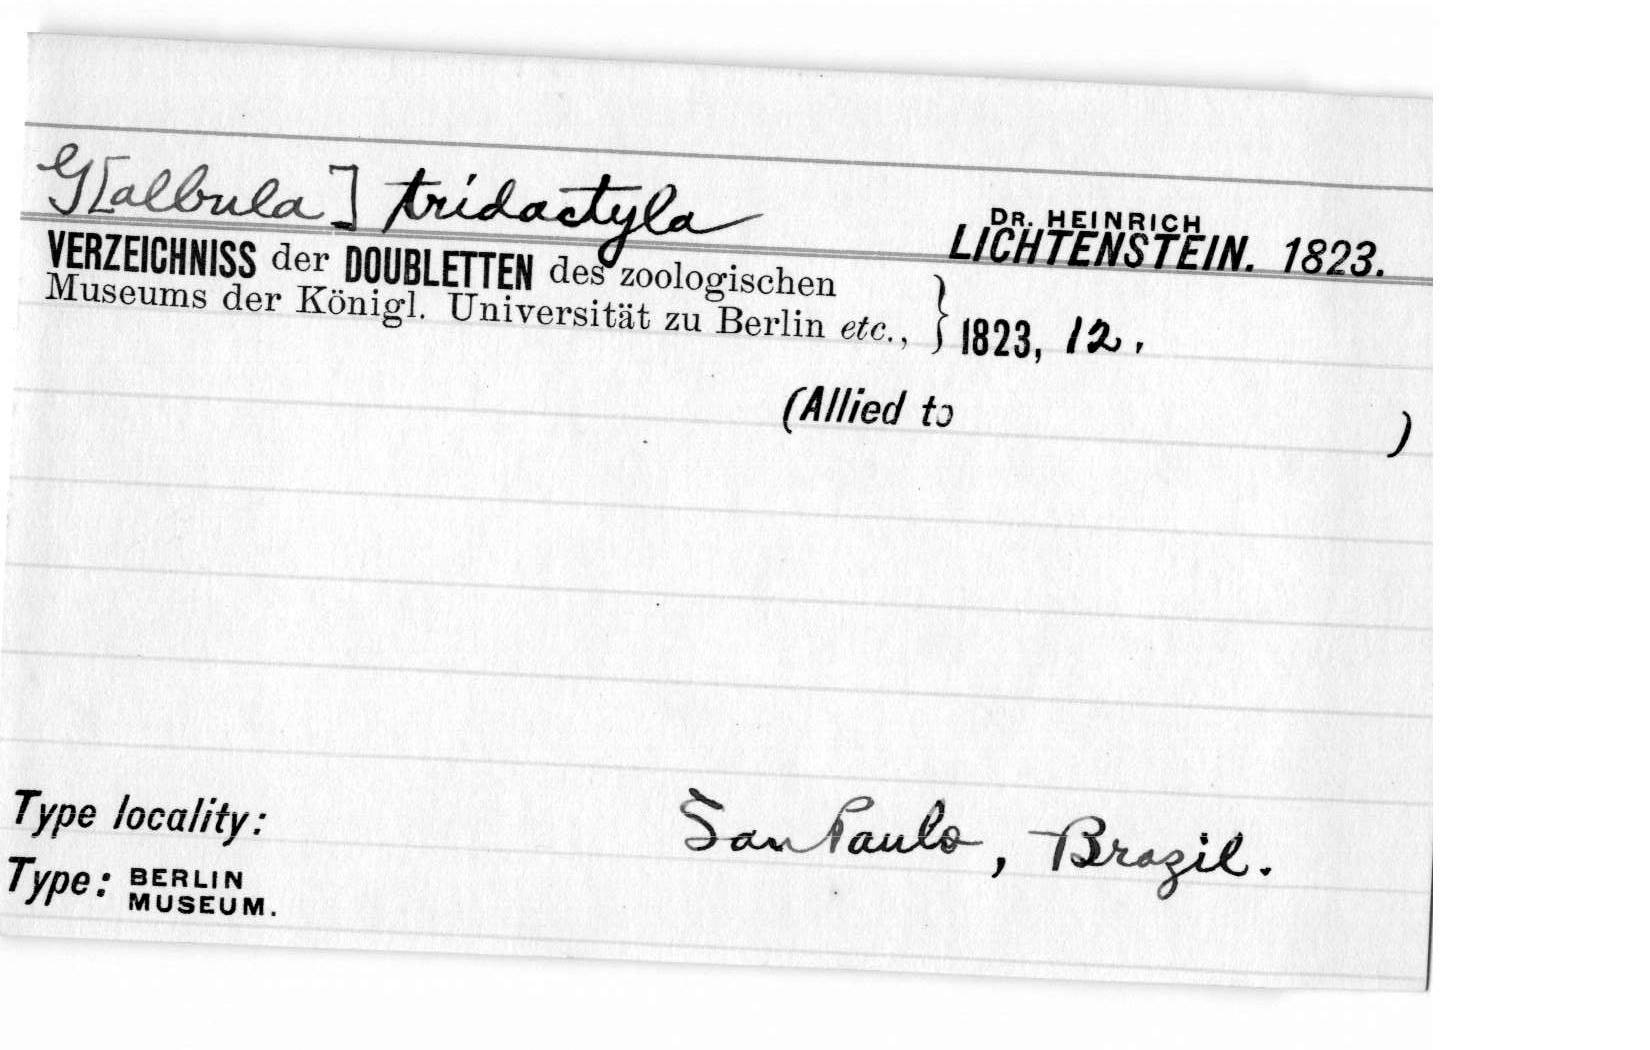 G[albula] tridactyla
DR. HEINRICH
LICHTENSTEIN. 1823.
VERZEICHNISS der DOUBLETTEN des zoologischen
Museums der Königl. Universität zu Berlin etc., } 1823, 12.
(Allied to )
Type locality: San Paulo, Brazil.
Type: BERLIN
MUSEUM.